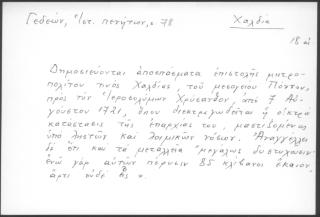 Γεδεών, Ἱστ. πενήτων, σ. 78
Χαλδία
18 αἰ
Δημοσιεύονται ἀποσπάσματα ἐπιστολῆς μητρο-
πολίτου τινός Χαλδίας, τοῦ μεσογείου Πόντου,
πρός τόν Ἱεροσολύμων Χρύσανθον, ἀπό 7 Αὐ-
γούστου 1721, ὅπου διεκτραγωδεῖται ἡ οἰκτρά
κατάστασις τῆς ἐπαρχίας του, μαστιζομένης
ὑπό λῃστῶν καί λοιμικῶν νόσων. Ἀναγγέλλει
δέ ὅτι καί τά μεταλλεῖα "μεγάλως δυστύχησαν
ἐνῶ γάρ αὐτῶν πέρυσιν 85 κλίβανοι ἔκαιον,
ἄρτι οὐδέ εἷς".